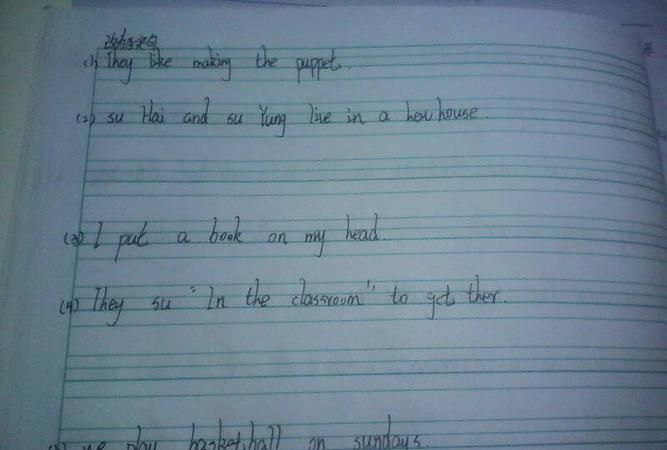 改为否定句
(1) They like making the puppet.
(2) su Hai and su Yung live in a new house.
(3) I put a book on my head.
(4) They su "In the classroom" to get ther.
we play basketball on sundays.